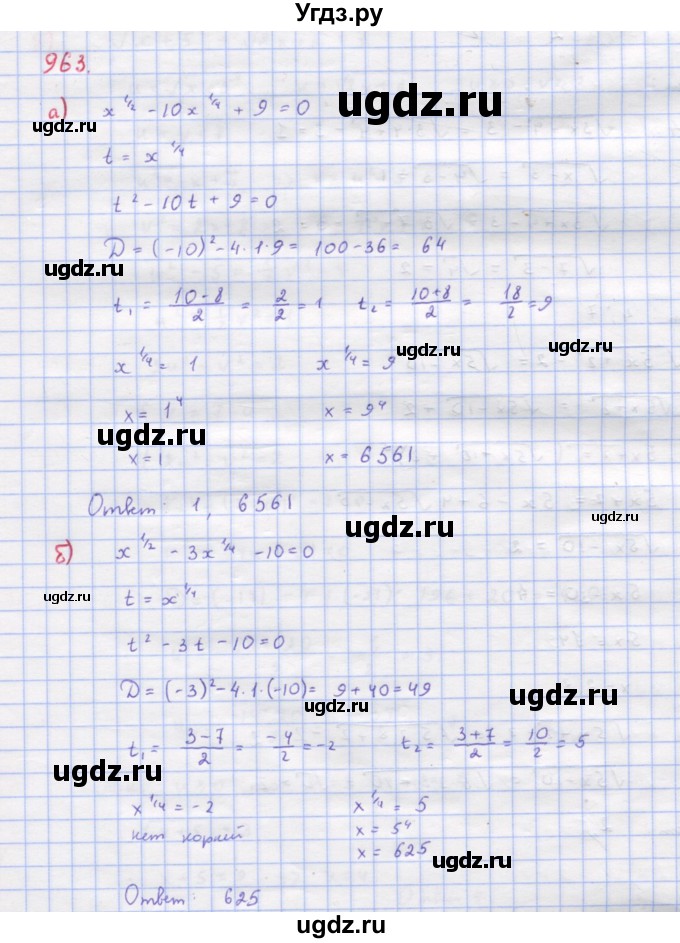 Угдз.ру
963.
а) x^{1/2} - 10x^{1/4} + 9 = 0
ugdz.ru ugdz.ru
t = x^{1/4}
t² - 10t + 9 = 0
D = (-10)² - 4·1·9 = 100 - 36 = 64
ugdz.ru
t₁ = (10-8)/2 = 2/2 = 1 t₂ = (10+8)/2 = 18/2 = 9
ugdz.ru ugdz.ru
x^{1/4} = 1 x^{1/4} = 9
x = 1⁴ x = 9⁴
ugdz.ru
x = 1 x = 6561
Ответ 1, 6561
ugdz.ru ugdz.ru
б) x^{1/2} - 3x^{1/4} - 10 = 0
ugdz.ru t = x^{1/4}
t² - 3t - 10 = 0
D = (-3)² - 4·1·(-10) = 9 + 40 = 49
ugdz.ru ugdz.ru
t₁ = (3-7)/2 = -4/2 = -2 t₂ = (3+7)/2 = 10/2 = 5
ugdz.ru
x^{1/4} = -2 x^{1/4} = 5
нет корней x = 5⁴
x = 625
ugdz.ru
Ответ: 625
ugdz.ru